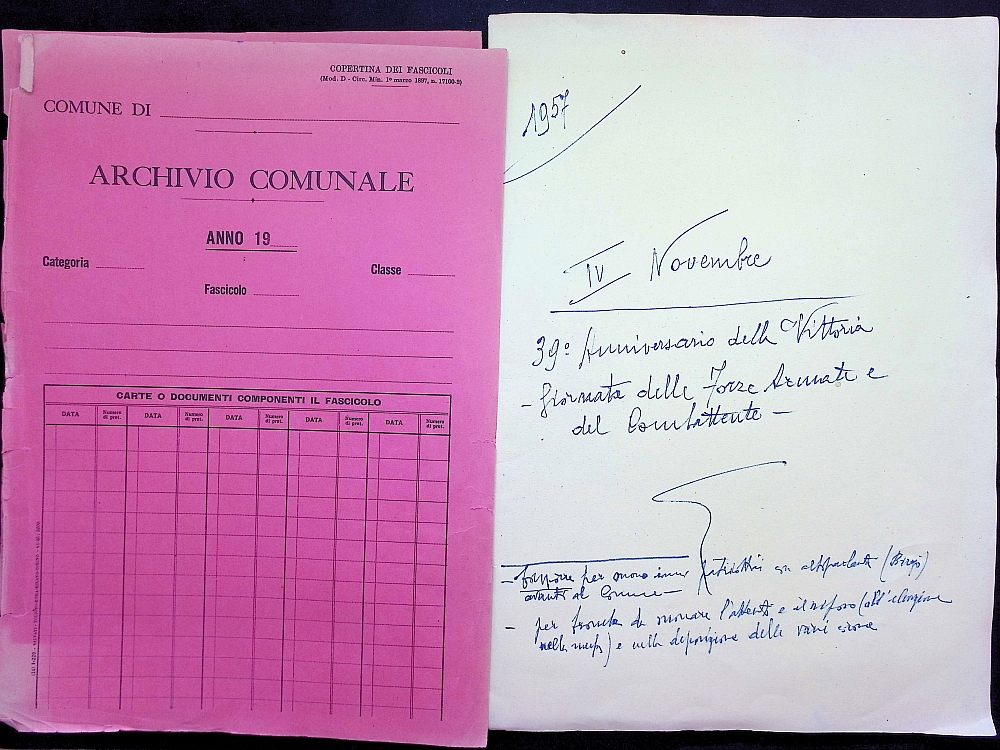 COPERTINA DEI FASCICOLI
(Mod. D - Circ. Min. 1º marzo 1897, n. 17100-2)
COMUNE DI
ARCHIVIO COMUNALE
ANNO 19
Categoria
Classe
Fascicolo
CARTE O DOCUMENTI COMPONENTI IL FASCICOLO
DATA Numero di prot. DATA Numero di prot. DATA Numero di prot. DATA Numero di prot. DATA Numero di prot.
1957
IV Novembre
39º Anniversario della Vittoria
- Giornata delle Forze Armate e
del Combattente -
- per suono inni patriottici con altoparlante
avanti al Comune -
- per tromba da suonare l'attenti e il riposo (all'elevazione
nella messa) e nella deposizione delle varie corone